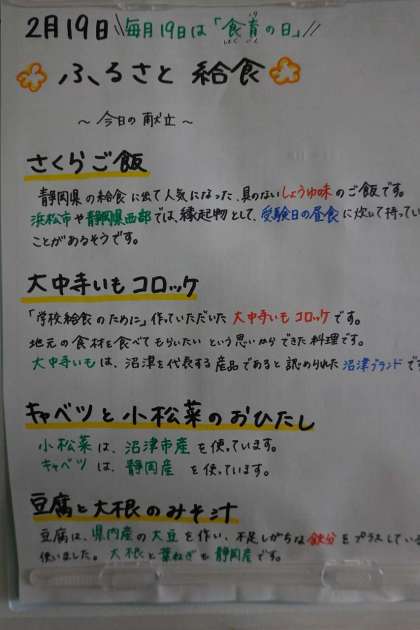 2月19日 \\毎月19日は「食育の日」//
しょく いく
ふるさと 給食
～ 今日の献立 ～
さくらご飯
静岡県の給食に出て人気になった、具のないしょうゆ味のご飯です。
浜松市や静岡県西部では、縁起物として、受験日の昼食に炊して持ってい
ことがあるそうです。
大中寺いもコロッケ
「学校給食のために」作っていただいた 大中寺いもコロッケです。
地元の食材を食べてもらいたいという思いからできた料理です。
大中寺いもは、沼津を代表する産品であると認められた 沼津ブランドで
キャベツと小松菜のおひたし
小松菜は、沼津市産を使っています。
キャベツは、静岡産を使っています。
豆腐と大根のみそ汁
豆腐は、県内産の大豆を作い、不足しがちな鉄分をプラスしている
使いました。大根と葉ねぎも静岡産です。